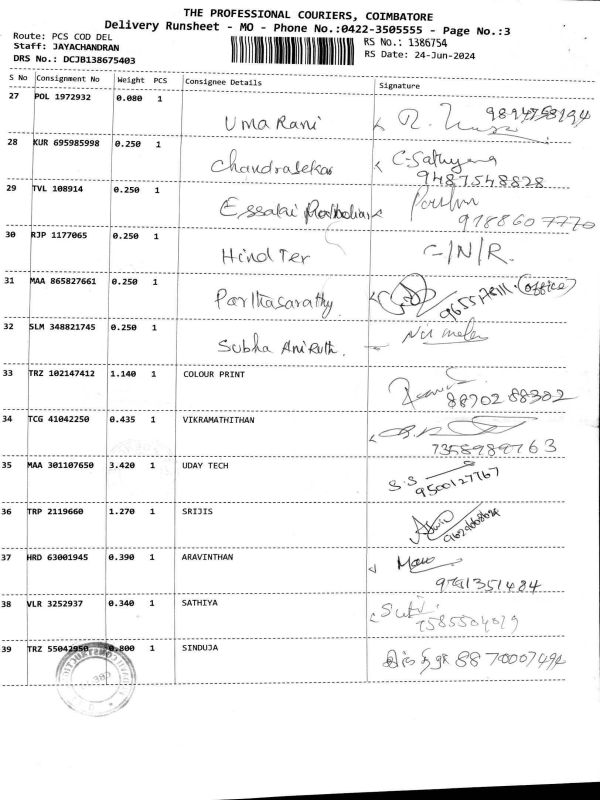 THE PROFESSIONAL COURIERS, COIMBATORE
Delivery Runsheet - MO - Phone No.:0422-3505555 - Page No.:3
Route: PCS COD DEL
Staff: JAYACHANDRAN
DRS No.: DCJB138675403
RS No.: 1386754
RS Date: 24-Jun-2024
S No Consignment No Weight PCS Consignee Details Signature
27 POL 1972932 0.080 1 Uma Rani
28 KUR 695985998 0.250 1 Chandrasekar C-Sathyena 9487548828
29 TVL 108914 0.250 1 Essakai 9188607770
30 RJP 1177065 0.250 1 Hind Ter C/N/R.
31 MAA 865827661 0.250 1 Parthasarathy (office)
32 SLM 348821745 0.250 1 Subha Anirudh. Nirmala
33 TRZ 102147412 1.140 1 COLOUR PRINT 8870288302
34 TCG 41042250 0.435 1 VIKRAMATHITHAN 7358989763
35 MAA 301107650 3.420 1 UDAY TECH S.S 9500127767
36 TRP 2119660 1.270 1 SRIJIS
37 HRD 63001945 0.390 1 ARAVINTHAN
38 VLR 3252937 0.340 1 SATHIYA
39 TRZ 55042950 0.800 1 SINDUJA